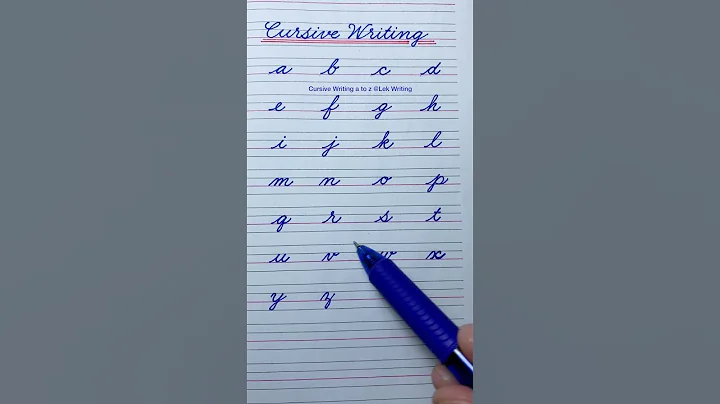 Cursive Writing
a b c d
Cursive Writing a to z @Lek Writing
e f g h
i j k l
m n o p
q r s t
u v w x
y z